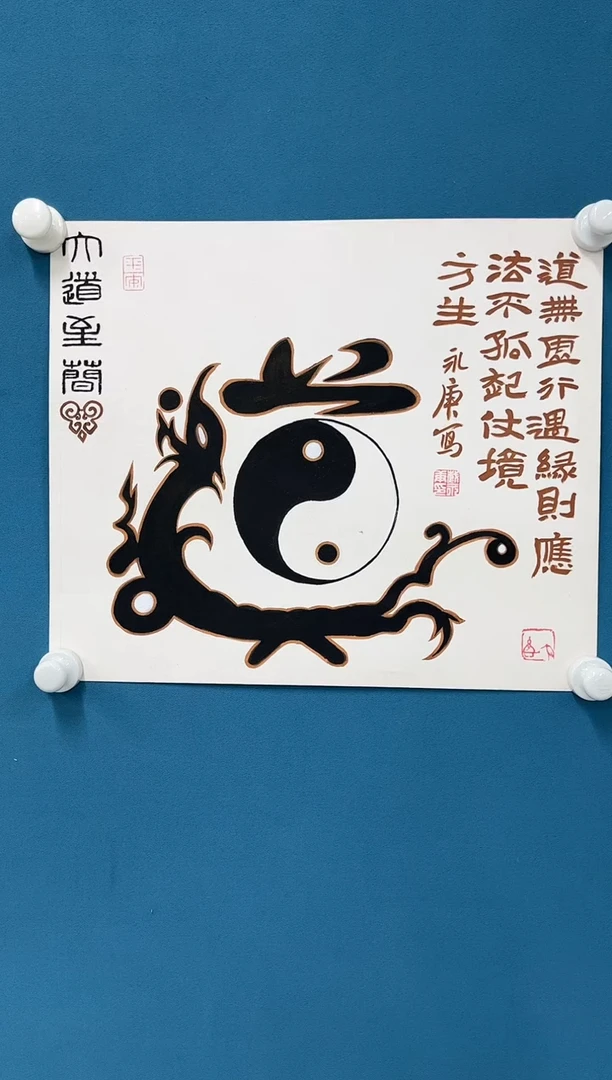 道無虛行遇緣則應
法不孤起仗境
方生
永庚写
大道至簡